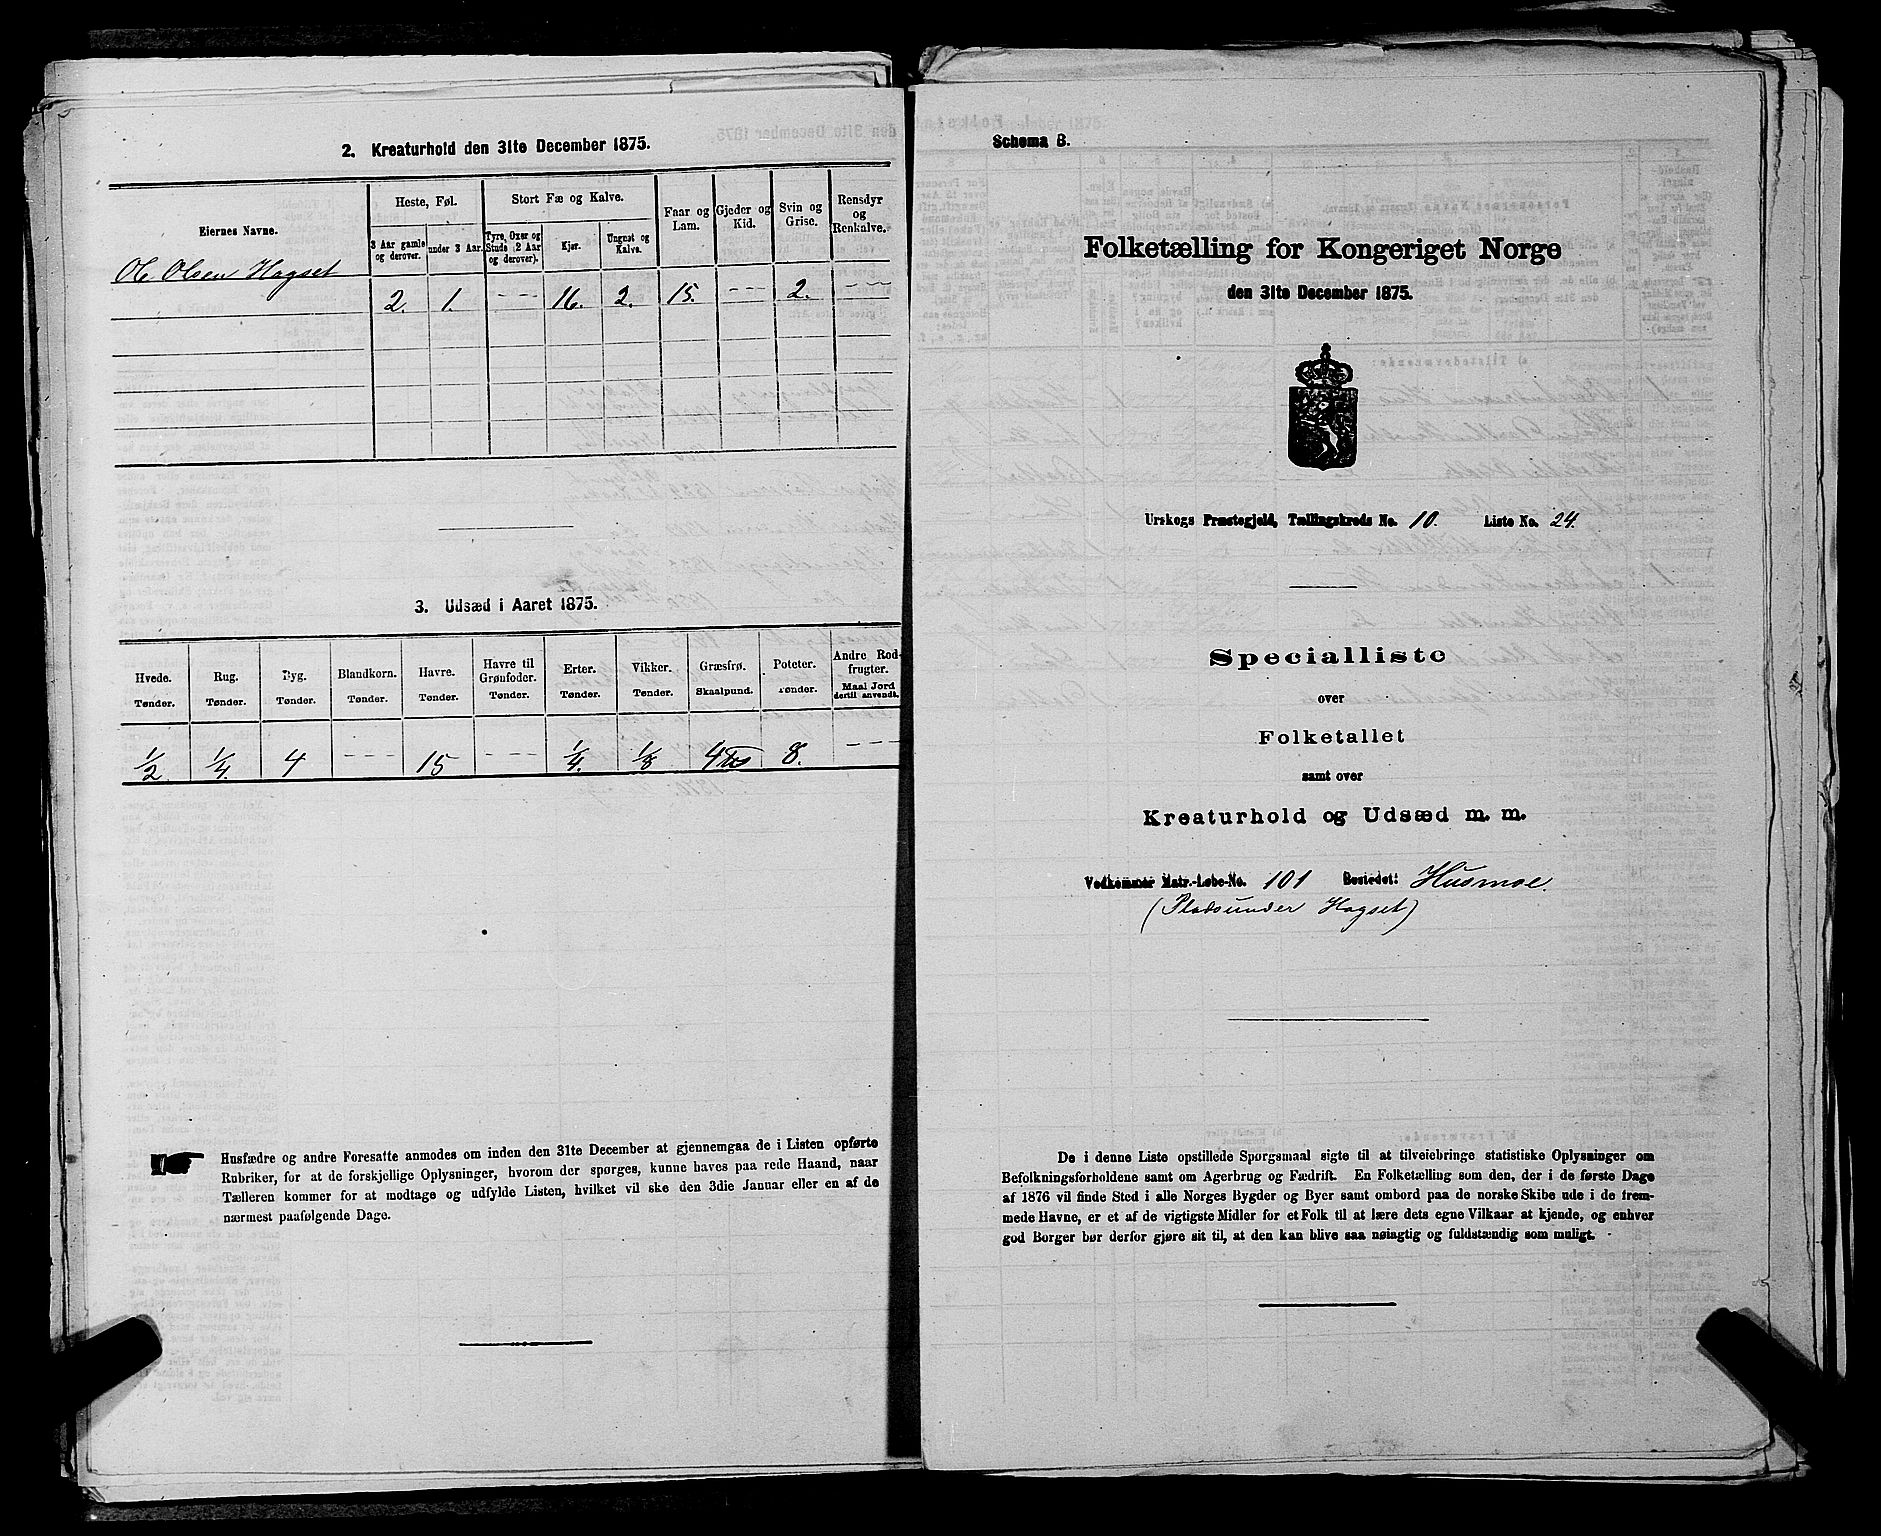 2. Kreaturhold den 31te December 1875.
Eiernes Navne.
Heste, Føl.
3 Aar gamle og derover.
under 3 Aar.
Stort Fæ og Kalve.
Tyre, Oxer og Stude (2 Aar og derover).
Kjør.
Ungnøt og Kalve.
Faar og Lam.
Gjeder og Kid.
Svin og Grise.
Rensdyr og Renkalve.
Ole Olsen Hogset
2. 1. - - 16. 2. 15. - - 2. - - -
3. Udsæd i Aaret 1875.
Hvede. Tønder.
Rug. Tønder.
Byg. Tønder.
Blandkorn. Tønder.
Havre. Tønder.
Havre til Grønfoder. Tønder.
Erter. Tønder.
Vikker. Tønder.
Græsfrø. Skaalpund.
Poteter. Tønder.
Andre Rodfrugter. Maal Jord dertil anvendt.
1/2 1/4. 4 - - - 15 - - - 1/4. 1/8 4 8. - - -
Husfædre og andre Foresatte anmodes om inden den 31te December at gjennemgaa de i Listen opførte
Rubriker, for at de forskjellige Oplysninger, hvorom der spørges, kunne haves paa rede Haand, naar
Tælleren kommer for at modtage og udfylde Listen, hvilket vil ske den 3die Januar eller en af de
nærmest paafølgende Dage.
Schema B.
Folketælling for Kongeriget Norge
den 31te December 1875.
Urskogs Præstegjeld, Tællingskreds No. 10. Liste No. 24.
Specialliste
over
Folketallet
samt over
Kreaturhold og Udsæd m. m.
Vedkommer Matr.-Løbe-No. 101 Bostedet: Husmoe.
(Plads under Hogset)
De i denne Liste opstillede Spørgsmaal sigte til at tilveiebringe statistiske Oplysninger om
Befolkningsforholdene samt om Agerbrug og Fædrift. En Folketælling som den, der i de første Dage
af 1876 vil finde Sted i alle Norges Bygder og Byer samt ombord paa de norske Skibe ude i de frem-
mede Havne, er et af de vigtigste Midler for et Folk til at lære dets egne Vilkaar at kjende, og enhver
god Borger bør derfor gjøre sit til, at den kan blive saa nøiagtig og fuldstændig som muligt.